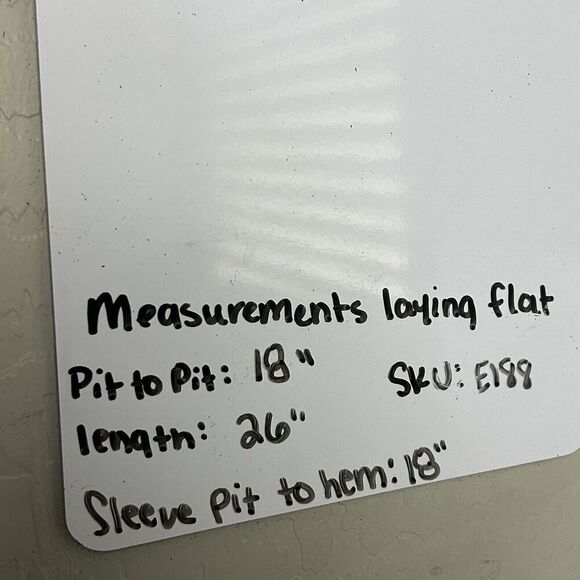 Measurements laying flat
Pit to Pit: 18" SKU: E188
length: 26"
Sleeve pit to hem: 18"